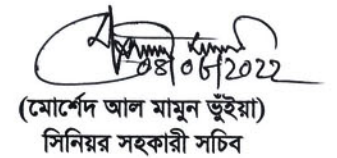 08/06/2022
(মোর্শেদ আল মামুন ভুঁইয়া)
সিনিয়র সহকারী সচিব